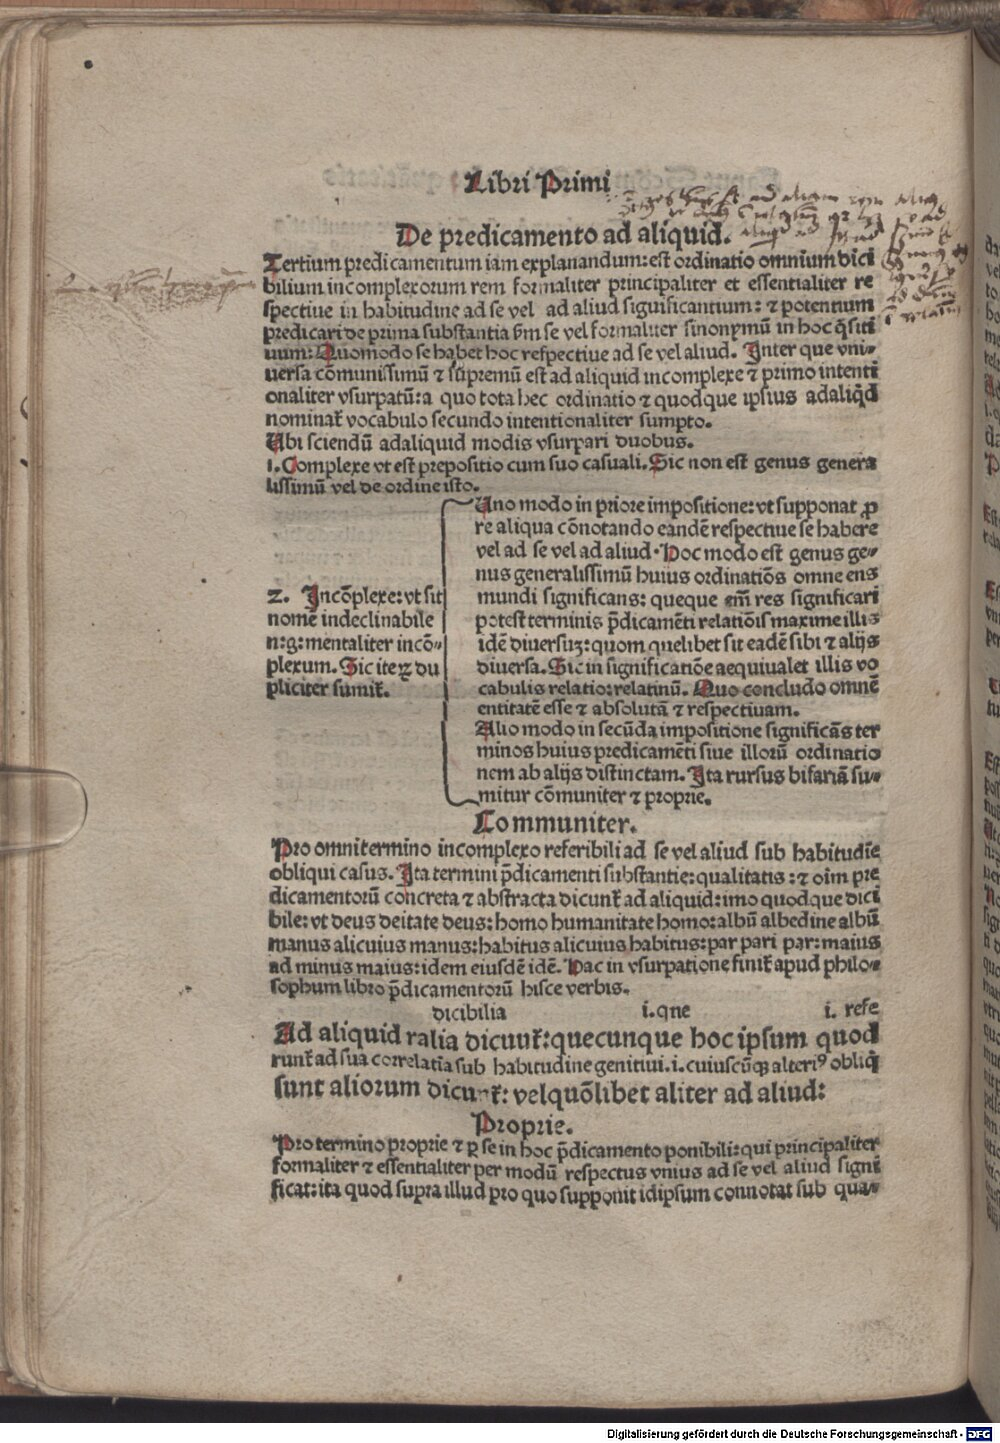 Libri Primi
De predicamento ad aliquid.
Tertium predicamentum iam explanandum: est ordinatio omnium dici
bilium incomplexorum rem formaliter principaliter et essentialiter re
spectiue in habitudine ad se vel ad aliud significantium: ⁊ potentum
predicari de prima substantia v̄m se vel formaliter sinonymū in hoc q̄siti
uum: Quomodo se habet hoc respectiue ad se vel aliud. Inter que vni-
uersa cōmunissimū ⁊ supremū est ad aliquid incomplexe ⁊ primo intenti
onaliter vsurpatū: a quo tota hec ordinatio ⁊ quodque ipsius adaliq̄d
nominat̄ vocabulo secundo intentionaliter sumpto.
Ubi sciendū adaliquid modis vsurpari duobus.
1. Complexe vt est prepositio cum suo casuali. Sic non est genus genera
lissimū vel de ordine isto.
2. Incōplexe: vt sit
nomē indeclinabile
n: g: mentaliter incō-
plexum. Sic iteꝝ du
pliciter sumit̄.
Uno modo in priore impositione: vt supponat ꝓ
re aliqua cōnotando eandē respectiue se habere
vel ad se vel ad aliud. Hoc modo est genus ge-
nus generalissimū huius ordinatiōs omne ens
mundi significans: queque em̄ res significari
potest terminis p̄dicamēti relatiōis maxime illis
idē diuersuꝫ: quom quelibet sit eadē sibi ⁊ alijs
diuersa. Sic in significatiōe aequiualet illis vo
cabulis relatio: relatiuū. Quo concludo omnē
entitatē esse ⁊ absolutā ⁊ respectiuam.
Alio modo in secūda impositione significās ter
minos huius predicamēti siue illorū ordinatio
nem ab alijs distinctam. Ita rursus bifariā su-
mitur cōmuniter ⁊ proprie.
Communiter.
Pro omni termino incomplexo referibili ad se vel aliud sub habitudīe
obliqui casus. Ita termini p̄dicamenti substantie: qualitatis: ⁊ oīm pre
dicamentorū concreta ⁊ abstracta dicunt̄ ad aliquid: imo quodque dici
bile: vt deus deitate deus: homo humanitate homo: albū albedine albū
manus alicuius manus: habitus alicuius habitus: par pari par: maius
ad minus maius: idem eiusdē idē. Hac in vsurpatione finit̄ apud philo-
sophum libro p̄dicamentorū hisce verbis.
dicibilia i. qne i. refe
Ad aliquid ralia dicunt̄: quecunque hoc ipsum quod
runt̄ ad sua correlatia sub habitudine genitiui. i. cuiuscūqꝫ alteriꝰ obliq̄
sunt aliorum dicunt̄: vel quōlibet aliter ad aliud:
Proprie.
Pro termino proprie ⁊ ꝑ se in hoc p̄dicamento ponibili: qui principaliter
formaliter ⁊ essentialiter per modū respectus vnius ad se vel aliud signi
ficat: ita quod supra illud pro quo supponit idipsum connotat sub qua-
Digitalisierung gefördert durch die Deutsche Forschungsgemeinschaft - DFG